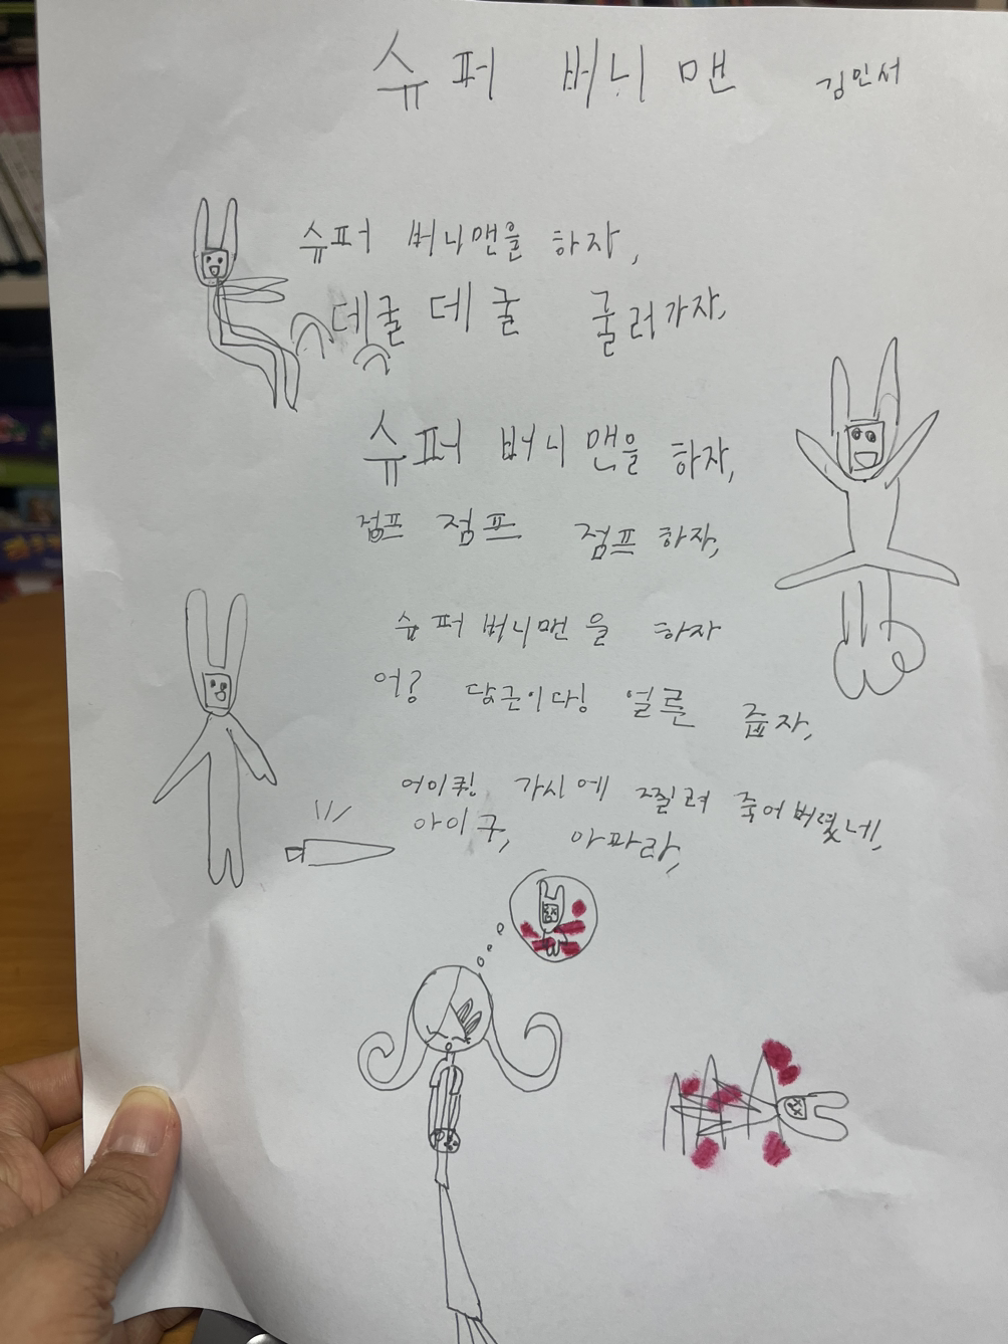 슈퍼 버니 맨 김민서
슈퍼 버니맨을 하자,
데굴 데굴 굴러가자,
슈퍼 버니맨을 하자,
점프 점프 점프 하자,
슈퍼 버니맨을 하자
어? 당근이다! 얼른 줍자,
어이쿠! 가시에 찔려 죽어버렸네,
아이구, 아파라,